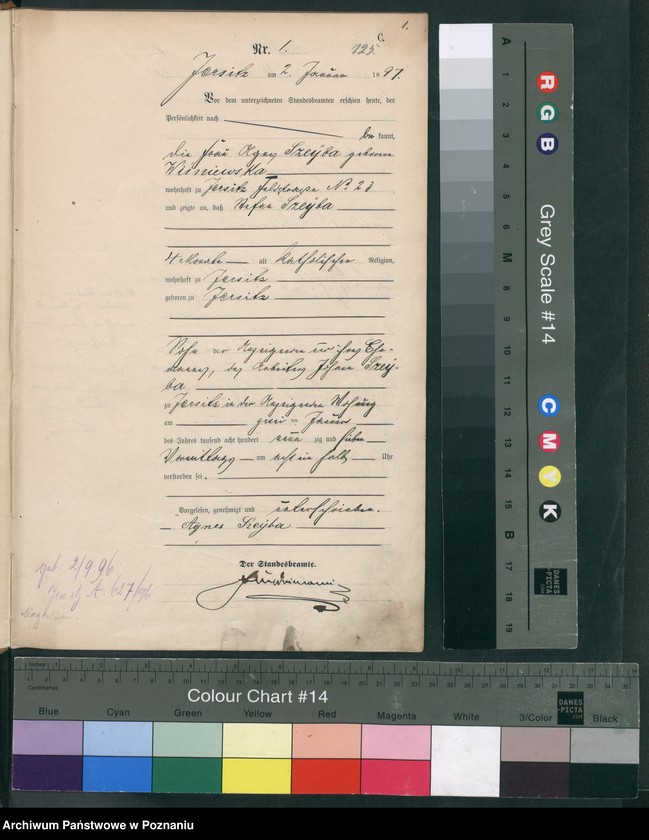 1.
C.
Nr. 1. 125.
Jersitz am 2. Januar 1897.
Vor dem unterzeichneten Standesbeamten erschien heute, der
Persönlichkeit nach
be kannt,
die Frau Agnes Szejba geborene
Wiśniewska
wohnhaft zu Jersitz No 23
und zeigte an, daß Stefan Szejba
4 Monate alt katholischer Religion,
wohnhaft zu Jersitz
geboren zu Jersitz
Sohn der Anzeigenden und ihres Ehe-
mannes, des Arbeiters Johann Szej-
ba
zu Jersitz in der Anzeigenden Wohnung
am Januar
des Jahres tausend acht hundert neun zig und sieben
Vormittags um acht ein halb Uhr
verstorben sei.
Vorgelesen, genehmigt und unterschrieben.
Agnes Szejba
Der Standesbeamte.
geb. 2/9.96
Jersitz A. 627/96
A 1 2 3 4 5 6 M 8 9 10 11 12 13 14 15 B 17 18 19
R G B
Grey Scale #14
C M Y K
DANES
-PICTA
.COM
Inches 1 2 3 4 5 6 7 8 9 10 11 12 13 14
Centimetres
Colour Chart #14
Blue Cyan Green Yellow Red Magenta White 3/Color Black
DANES
-PICTA
.COM
Archiwum Państwowe w Poznaniu